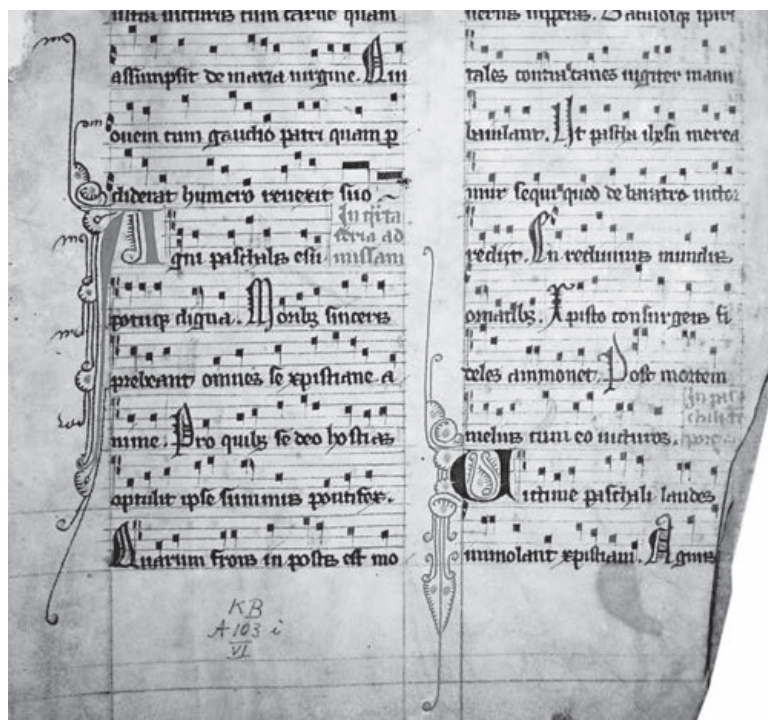 uicturis cum carne quam
assumpsit de maria uirgine. Qui
ouem cum gaudio patri quam p
diderat humero reuexit suo
In qrta
feria ad
Agni paschalis esu missam
potuq; digna. Moribz sinceris
prebeant omnes se xpistiane a
nime. Pro quibz se deo hostias
optulit ipse summus pontifex.
Quarum frons in postis est mo
KB
A 103 i
VI
Baculosq; spiri
tales contra canes iugiter manu
baiulant. Ut pascha ihesu merea
mur sequi quod de baratro uictor
redijt. En rediuiuus mundus
ornatibz. Xpisto consurgens fi
deles ammonet. Post mortem
In pas
chali te
melius cum eo uicturos. pore
Uictime paschali laudes
immolant xpistiani. Agnus